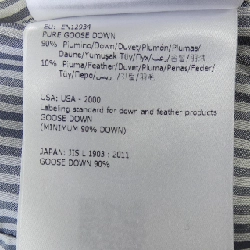 EU: EN12934
PURE GOOSE DOWN
90% Plumino/Down/Duvet/Plumón/Plumas/
Daune/Yumuşak Tüy/Пух/
10% Piuma/Feather/Duvet/Pluma/Penas/Feder/
Tüy/Перо/
USA: USA - 2000
Labeling standard for down and feather products
GOOSE DOWN
(MINIMUM 90% DOWN)
JAPAN: JIS L 1903 : 2011
GOOSE DOWN 90%